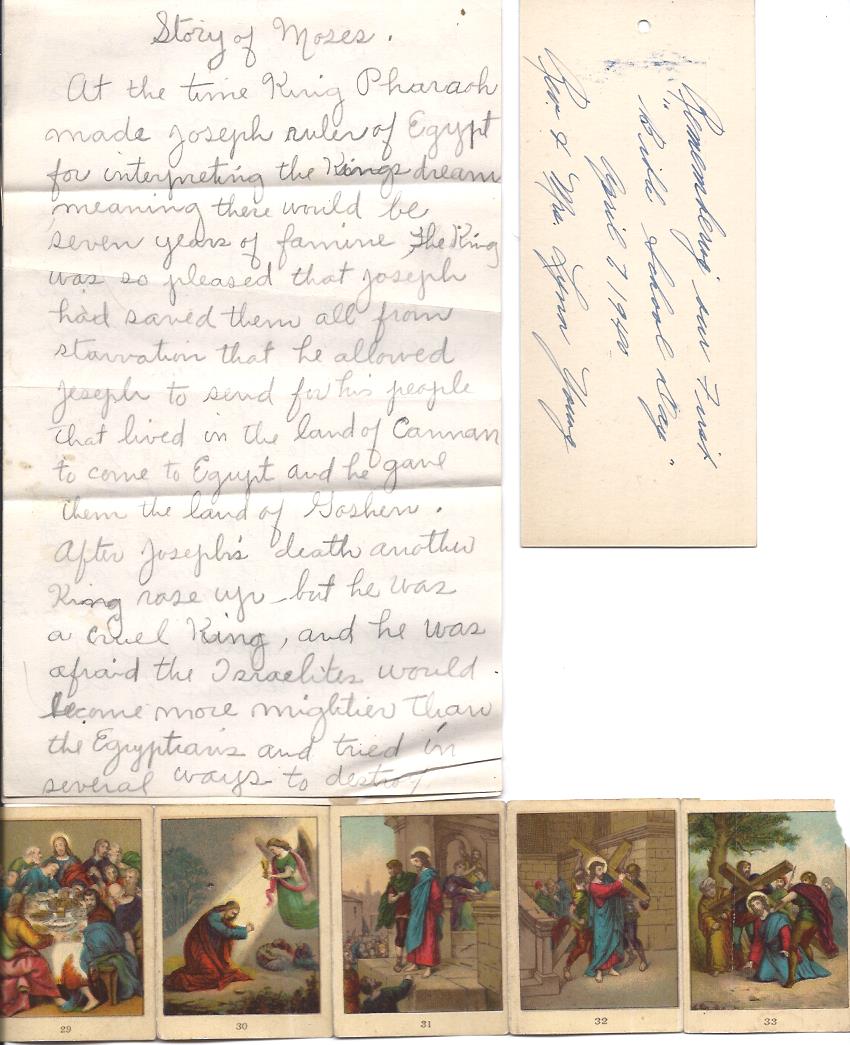 Story of Moses.
At the time King Pharaoh
made Joseph ruler of Egypt
for interpreting the Kings dream
meaning there would be
seven years of famine, The King
was so pleased that Joseph
had saved them all from
starvation that he allowed
Joseph to send for his people
that lived in the land of Cannan
to come to Egypt and he gave
them the land of Goshen.
After Joseph's death another
King rose up but he was
a cruel King, and he was
afraid the Israelites would
become more mightier than
the Egyptians and tried in
several ways to destroy
Remembering our First
"Bible School Day"
April 7 1940
Rev. & Mrs. Lynn Young
29
30
31
32
33